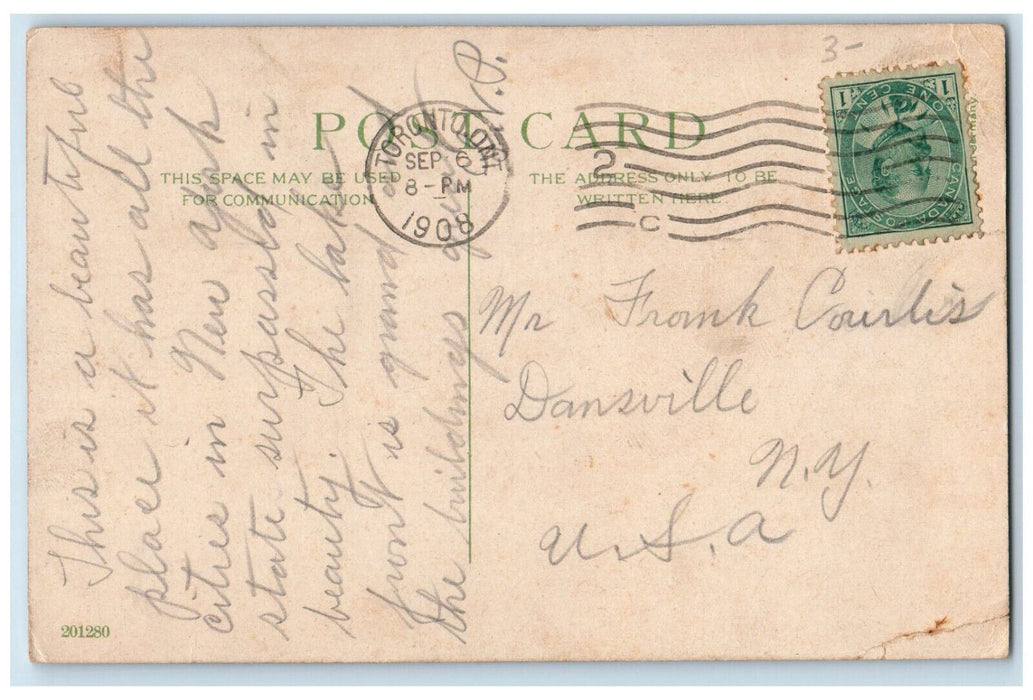 3-
POST CARD
THIS SPACE MAY BE USED
FOR COMMUNICATION
THE ADDRESS ONLY TO BE
WRITTEN HERE.
TORONTO, ONT
SEP 6
8 - PM
1908
2
C
1 ONE CENT 1
CANADA POSTAGE
Germany
This is a beautiful
place it has all the
cities in New York
state surpassed in
beauty. The lake
front is grand and
the buildings
W.P.
Mr Frank Courtis
Dansville
N.Y.
U.S.A
201280